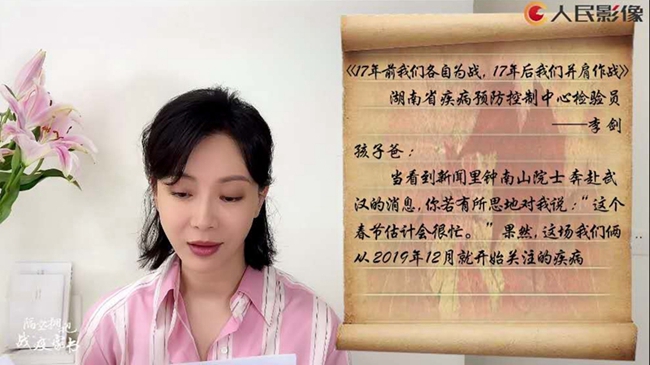 人民影像
《17年前我们各自为战，17年后我们并肩作战》
湖南省疾病预防控制中心检验员
——李剑
孩子爸：
当看到新闻里钟南山院士奔赴武
汉的消息，你若有所思地对我说：“这个
春节估计会很忙。”果然，这场我们俩
从2019年12月就开始关注的疾病